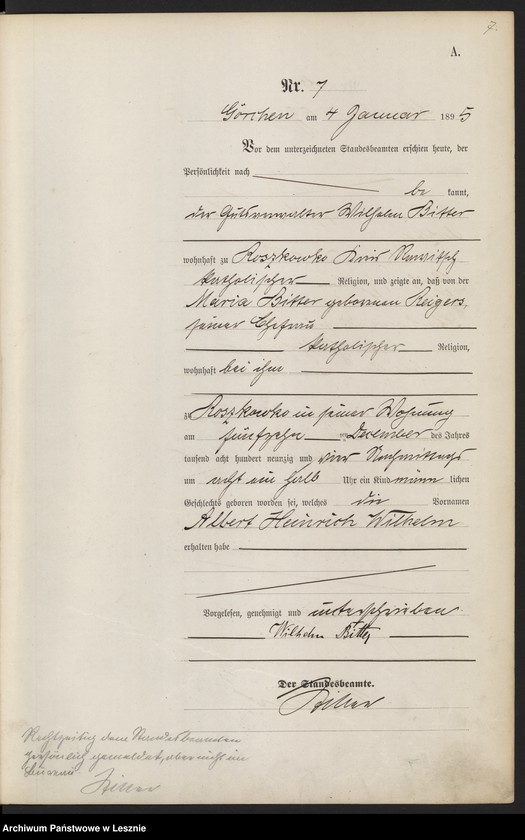 7.
A.
Nr. 7
Görchen am 4 Januar 1895
Vor dem unterzeichneten Standesbeamten erschien heute, der
Persönlichkeit nach
be kannt,
der Gutsverwalter Wilhelm Bitter
wohnhaft zu Roszkowko Kreis Rawitsch
katholischer Religion, und zeigte an, daß von der
Maria Bitter geborenen Reigers,
seiner Ehefrau
katholischer Religion,
wohnhaft bei ihm
zu Roszkowko in seiner Wohnung
am fünfzehn ten December des Jahres
tausend acht hundert neunzig und vier Nachmittags
um acht ein halb Uhr ein Kind männ lichen
Geschlechts geboren worden sei, welches die Vornamen
Albert Heinrich Wilhelm
erhalten habe
Vorgelesen, genehmigt und unterschrieben
Wilhelm Bitter
Der Standesbeamte.
Rechtzeitig dem Standesbeamten
persönlich gemeldet, aber nicht im
Bureau
Archiwum Państwowe w Lesznie